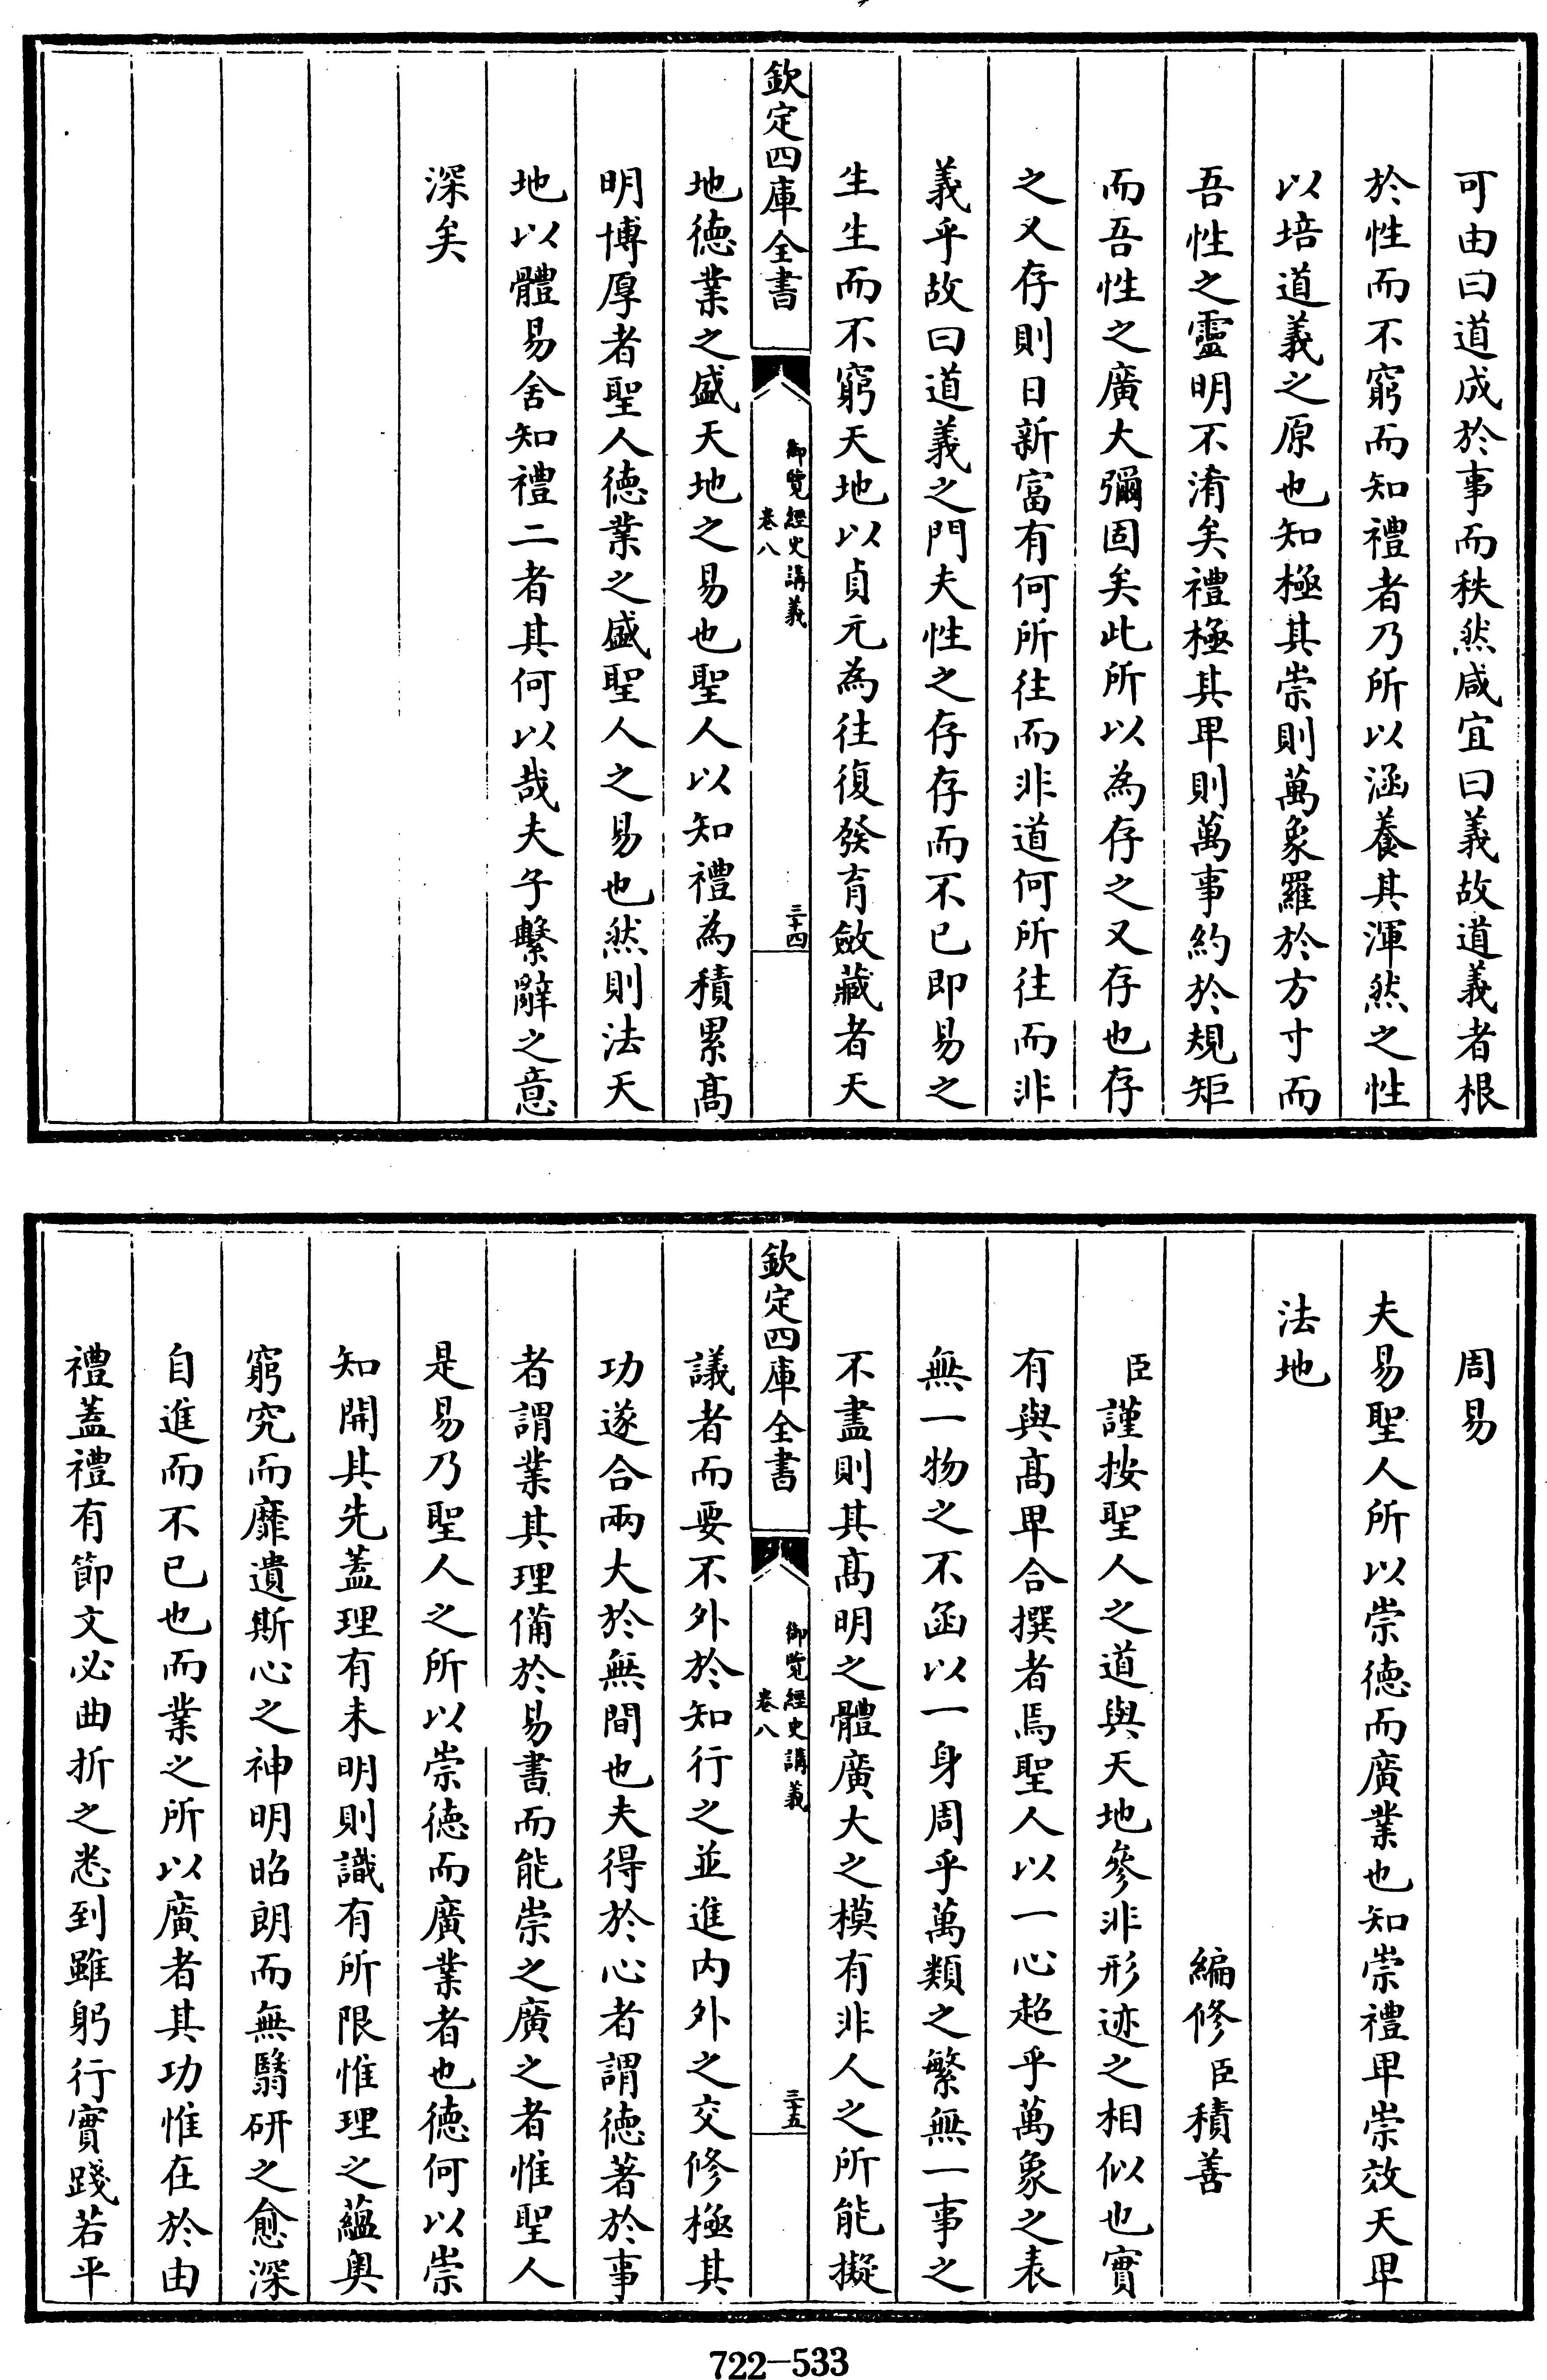 可由曰道成於事而秩然咸宜曰義故道義者根
於性而不窮而知禮者乃所以涵養其渾然之性
以培道義之原也知極其崇則萬象羅於方寸而
吾性之靈明不淆矣禮極其卑則萬事約於規矩
而吾性之廣大彌固矣此所以為存之又存也存
之又存則日新富有何所往而非道何所往而非
義乎故曰道義之門夫性之存存而不已即易之
生生而不窮天地以貞元為往復發育斂藏者天
欽定四庫全書
御覽經史講義
卷八
三十四
地德業之盛天地之易也聖人以知禮為積累高
明博厚者聖人德業之盛聖人之易也然則法天
地以體易舍知禮二者其何以哉夫子繫辭之意
深矣
周易
夫易聖人所以崇德而廣業也知崇禮卑崇效天卑
法地
編修臣積善
臣謹按聖人之道與天地參非形迹之相似也實
有與高卑合撰者焉聖人以一心超乎萬象之表
無一物之不函以一身周乎萬類之繁無一事之
不盡則其高明之體廣大之模有非人之所能擬
欽定四庫全書
御覽經史講義
卷八
三十五
議者而要不外於知行之並進內外之交修極其
功遂合兩大於無間也夫得於心者謂德著於事
者謂業其理備於易書而能崇之廣之者惟聖人
是易乃聖人之所以崇德而廣業者也德何以崇
知開其先蓋理有未明則識有所限惟理之蘊奧
窮究而靡遺斯心之神明昭朗而無翳研之愈深
自進而不已也而業之所以廣者其功惟在於由
禮蓋禮有節文必曲折之悉到雖躬行實踐若平
722—533